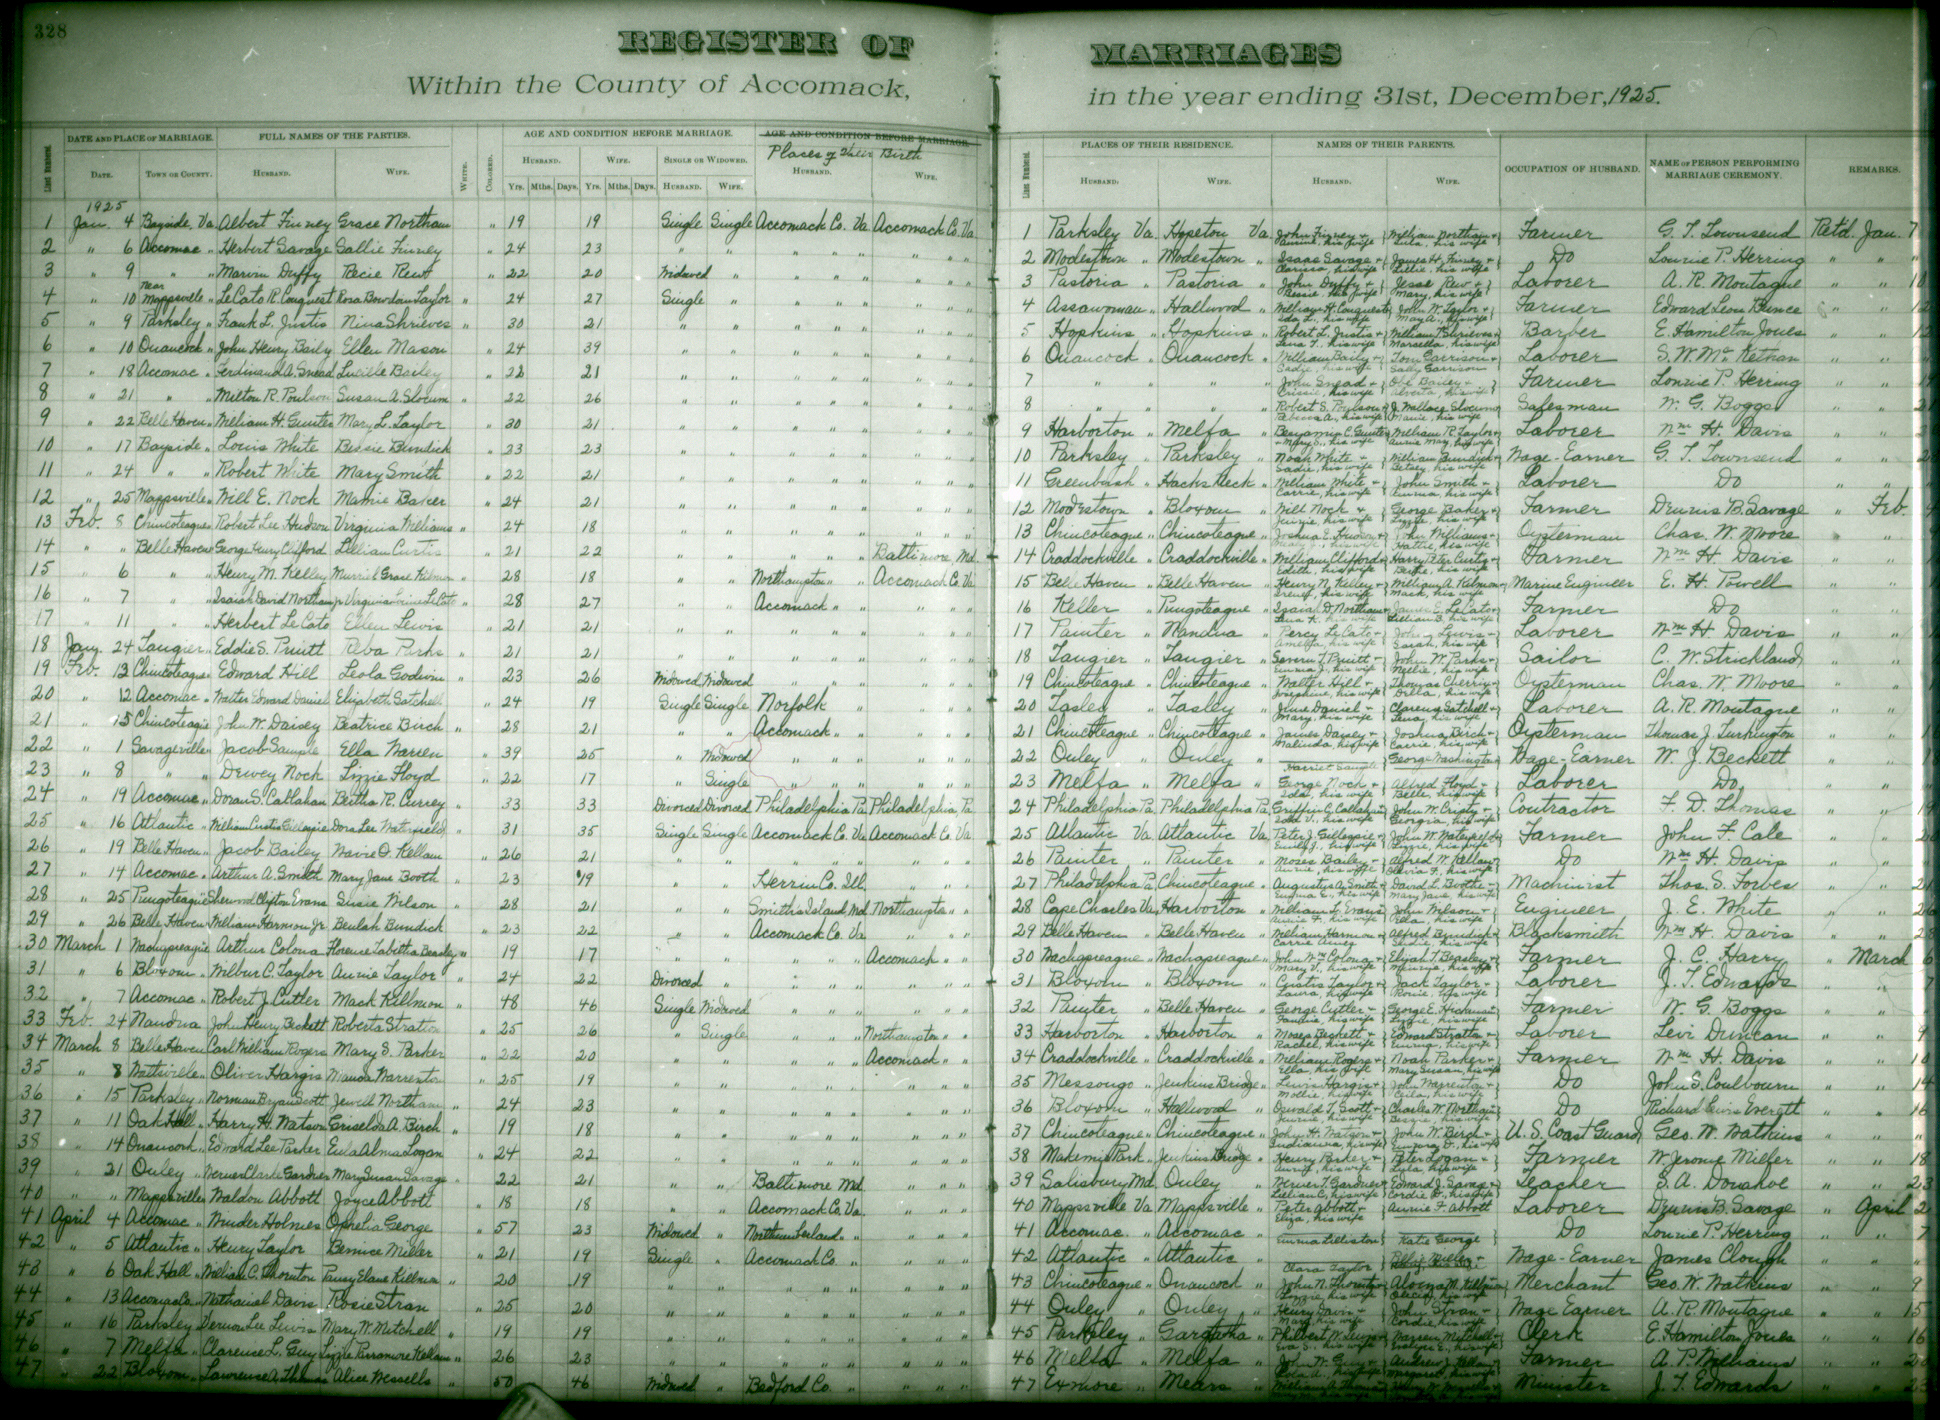 328
REGISTER OF MARRIAGES
Within the County of Accomack, in the year ending 31st, December, 1925.
DATE AND PLACE OF MARRIAGE. FULL NAMES OF THE PARTIES. AGE AND CONDITION BEFORE MARRIAGE. AGE AND CONDITION BEFORE MARRIAGE. PLACES OF THEIR RESIDENCE. NAMES OF THEIR PARENTS. OCCUPATION OF HUSBAND. NAME OF PERSON PERFORMING MARRIAGE CEREMONY. REMARKS.
Places of Their Birth
Line Numbers. DATE. TOWN OR COUNTY. HUSBAND. WIFE. WHITE. COLORED. HUSBAND. WIFE. SINGLE OR WIDOWED. HUSBAND. WIFE. Line Numbers. HUSBAND. WIFE. HUSBAND. WIFE.
Yrs. Mths. Days. Yrs. Mths. Days. HUSBAND. WIFE.
1925
1 Jan. 4 Bayside, Va Albert Finney Grace Northam " 19 19 Single Single Accomack Co. Va. Accomack Co. Va. 1 Parksley Va. Hopeton Va. John Finney + his wife William Northam + Lula, his wife Farmer G. T. Townsend Ret'd. Jan. 7
2 " 6 Accomac " Herbert Savage Sallie Finney " 24 23 " " " " 2 Modestown " Modestown " Isaac Savage + his wife James H. Finney + Lillie, his wife Do Lonnie P. Herring " "
3 " 9 " " Marvin Duffy Recie Rew " 22 20 Widowed " " " 3 Pastoria " Pastoria " John Duffy + Bessie, his wife Jesse Rew + Mary, his wife Laborer A. R. Montague " " 10
4 " 10 near Mappsville " LeCato R. Conquest Rosa Bowdoin Taylor " 24 27 Single " " " 4 Assawoman " Hallwood " William H. Conquest his wife John W. Taylor + May A., his wife Farmer Edward Leon Bunce " " 12
5 " 9 Parksley " Frank L. Justis Nina Shrieves " 30 21 " " " " 5 Hopkins " Hopkins " Robert L. Justis + his wife William Shrieves + Marcella, his wife Barber E. Hamilton Jones " " 12
6 " 10 Onancock " John Henry Baily Ellen Mason " 24 39 " " " " 6 Onancock " Onancock " William Baily + Sadie, his wife Tom Garrison + Sally Garrison Laborer S. W. McKethan " "
7 " 18 Accomac " Ferdinand A. Snead Lucille Bailey " 22 21 " " " " 7 " " John Snead + his wife Obe Bailey + Alverta, his wife Farmer Lonnie P. Herring " "
8 " 21 " " Milton R. Poulson Susan A. Slocum 22 26 " " " " 8 " " Robert S. Poulson + his wife J. Wallace Slocum his wife Salesman W. G. Boggs " "
9 " 22 Belle Haven " William H. Gunter Mary L. Taylor " 30 21 " " " " 9 Harborton " Melfa " Benjamin C. Gunter his wife William R. Taylor + Annie Mary, his wife Laborer Wm H. Davis " "
10 " 17 Bayside " Louis White Bessie Bundick " 23 23 " " " " 10 Parksley " Parksley " Noah White + Sadie, his wife William Bundick + Betsey, his wife Wage-Earner G. T. Townsend " "
11 " 24 " " Robert White Mary Smith " 22 21 " " " " 11 Greenbush " Hacks Neck " William White + Carrie, his wife John Smith + Emma, his wife Laborer Do " "
12 " 25 Mappsville " Will E. Nock Mamie Baker " 24 21 " " " " 12 Modestown " Bloxom " Will Nock + his wife George Baker + Lizzie, his wife Farmer Dennis B. Savage " Feb.
13 Feb. 8 Chincoteague " Robert Lee Hudson Virginia Williams " 24 18 " " " " 13 Chincoteague " Chincoteague " Joshua Hudson + his wife John Williams + Hattie, his wife Oysterman Chas. W. Moore " "
14 " " Belle Haven " George Henry Clifford Lillian Curtis " 21 22 " " " Baltimore Md. 14 Craddockville " Craddockville " William Clifford + Edith, his wife Harry Peter Curtis + his wife Farmer Wm H. Davis " "
15 " 6 " " Henry M. Kelley Murriel Grace Kilmon " 28 18 " " Northampton " " Accomack Co. Va. 15 Belle Haven " Belle Haven " Henry N. Kelley + Irene, his wife William A. Kilmon + Mack, his wife Marine Engineer E. H. Powell " "
16 " 7 " " Isaiah David Northam Jr. Virginia LeCato " 28 27 " " Accomack " " " 16 Keller " Pungoteague " Isaiah D. Northam + his wife James E. LeCato + Lillian B., his wife Farmer Do " "
17 " 11 " " Herbert LeCato Ellen Lewis " 21 21 " " " " 17 Painter " Nandua " Percy LeCato + Amelia, his wife John Lewis + Sarah, his wife Laborer Wm H. Davis " "
18 Jany. 24 Tangier " Eddie S. Pruitt Reba Parks " 21 21 " " " " 18 Tangier " Tangier " Severn T. Pruitt + Emma J., his wife John W. Parks + Nellie, his wife Sailor C. W. Strickland " "
19 Feb. 13 Chincoteague " Edward Hill Leola Godwin " 23 26 Widowed Widowed " " 19 Chincoteague " Chincoteague " Walter Hill + Josephine, his wife Thomas Cherrix + Della, his wife Oysterman Chas. W. Moore " "
20 " 12 Accomac " Walter Edward Daniel Elizabeth Satchell " 24 19 Single Single Norfolk " " 20 Tasley " Tasley " June Daniel + Mary, his wife Clarence Satchell + Lena, his wife Laborer A. R. Montague " "
21 " 15 Chincoteague " John W. Daisey Beatrice Birch " 28 21 " " Accomack " " " 21 Chincoteague " Chincoteague " James Daisey + Malinda, his wife Joshua Birch + Carrie, his wife Oysterman Thomas J. Turkington " "
22 " 1 Savageville " Jacob Sample Ella Warren " 39 25 " Widowed " " 22 Onley " Onley " Harriet Sample George Washington Wage-Earner W. J. Beckett " "
23 " 8 " " Dewey Nock Lizzie Floyd " 22 17 " Single " " 23 Melfa " Melfa " George Nock + Ida, his wife Alfred Floyd + Belle, his wife Laborer Do. " "
24 " 19 Accomac " Doran S. Callahan Bertha R. Currey " 33 33 Divorced Divorced Philadelphia Pa. Philadelphia Pa. 24 Philadelphia Pa. Philadelphia Pa. Griffin C. Callahan his wife John W. Crist + Georgia, his wife Contractor F. D. Thomas " " 19
25 " 16 Atlantic " William Curtis Gillespie Dora Lee Waterfield " 31 35 Single Single Accomack Co. Va. Accomack Co. Va. 25 Atlantic Va. Atlantic Va. Peter J. Gillespie + Emily J., his wife John W. Waterfield + Lizzie, his wife Farmer John F. Cale " "
26 " 19 Belle Haven " Jacob Bailey Navie O. Kellam " 26 21 " " " " 26 Painter " Painter " Moses Bailey + Annie, his wife Alfred W. Kellam + Olevia F., his wife Do Wm H. Davis " "
27 " 14 Accomac " Arthur A. Smith Mary Jane Booth " 23 19 " " Herrin Co. Ill. " 27 Philadelphia Pa. Chincoteague " Augustus A. Smith + Emma E., his wife David L. Booth + Mary Jane, his wife Machinist Thos. S. Forbes " " 21
28 " 25 Pungoteague " Sherwood Clifton Evans Susie Wilson " 28 21 " " Smiths Island Md. Northampton " " 28 Cape Charles Va. Harborton " William L. Evans his wife John Wilson + Ella, his wife Engineer J. E. White " " 26
29 " 26 Belle Haven " William Harmon Jr. Beulah Bundick " 23 22 " " Accomack Co. Va. " 29 Belle Haven " Belle Haven " William Harmon + Carrie Ames Alfred Bundick + Sadie, his wife Blacksmith Wm H. Davis " " 28
30 March 1 Wachapreague " Arthur Colona Florence Tabitha Beasley " 19 17 " " " Accomack " " 30 Wachapreague " Wachapreague " John Wm Colona + Mary V., his wife Elijah T. Beasley + his wife Farmer J. C. Harry " March 6
31 " 6 Bloxom " Wilbur C. Taylor Annie Taylor " 24 22 Divorced " " " 31 Bloxom " Bloxom " Curtis Taylor + Laura, his wife Jack Taylor + Roxie, his wife Laborer J. T. Edwards " " 7
32 " 7 Accomac " Robert J. Cutler Mack Killmon " 48 46 Single Widowed " " 32 Painter " Belle Haven " George Cutler + his wife George E. Hickman + Lizzie, his wife Farmer W. G. Boggs " "
33 Feb. 24 Nandua " John Henry Beckett Roberta Stratton " 25 26 " Single " Northampton " " 33 Harborton " Harborton " Moses Beckett + Rachel, his wife Edward Stratton + Emma, his wife Laborer Levi Duncan " " 9
34 March 8 Belle Haven " Carl William Rogers Mary S. Parker " 22 20 " " " Accomack " " 34 Craddockville " Craddockville " William Rogers + Ella, his wife Noah Parker + Mary Susan, his wife Farmer Wm H. Davis " " 10
35 " 8 Wattsville " Oliver Hargis Wanda Warrenton " 25 19 " " " " 35 Messongo " Jenkins Bridge " Lewis Hargis + Mollie, his wife John Warrenton + his wife Do John S. Coulbourn " " 14
36 " 15 Parksley " Norman Bryan Scott Jewell Northam " 24 23 " " " " 36 Bloxom " Hallwood " Oswald T. Scott + his wife Charles W. Northam + Bessie, his wife Do Richard Lewis Everett " " 16
37 " 11 Oak Hall " Harry H. Watson Griselda A. Birch " 19 18 " " " " 37 Chincoteague " Chincoteague " John H. Watson + his wife John W. Birch + his wife U. S. Coast Guard Geo. W. Watkins " " "
38 " 14 Onancock " Edward Lee Parker Eula Alma Logan " 24 22 " " " " 38 Makemie Park " Jenkins Bridge " Henry Parker + Annie, his wife Peter Logan + Lula, his wife Farmer W. Jerome Miller " " 18
39 " 21 Onley " Verner Clarke Gardner Mary Susan Savage " 22 21 " " Baltimore Md. " 39 Salisbury Md. Onley " Verner T. Gardner + Lillian C., his wife Edward J. Savage + Cordie D., his wife Teacher S. A. Donahoe " " 23
40 " " Mappsville " Waldon Abbott Joyce Abbott " 18 18 " " Accomack Co. Va. " 40 Mappsville Va. Mappsville " Peter Abbott + Eliza, his wife Annie F. Abbott Laborer Dennis B. Savage " April 2
41 April 4 Accomac " Winder Holmes Ophelia George " 57 23 Widowed " Northumberland " " 41 Accomac " Accomac " Emma Lilliston Katie George Do Lonnie P. Herring " " 7
42 " 5 Atlantic " Henry Taylor Bernice Miller " 21 19 Single " Accomack Co. " " 42 Atlantic " Atlantic " Clara Taylor Wage-Earner James Clough " "
43 " 6 Oak Hall " William C. Thornton Pansy Elane Killmon " 20 19 " " " " 43 Chincoteague " Onancock " John N. Thornton + Lizzie, his wife Alonza M. Killmon his wife Merchant Geo. W. Watkins " " 9
44 " 13 Accomac Co. " Nathaniel Davis Rosie Stran " 25 20 " " " " 44 Onley " Onley " Henry Davis + Mary, his wife John Stran + Cordie, his wife Wage Earner A. R. Montague " " 15
45 " 16 Parksley " Vernon Lee Lewis Mary W. Mitchell " 19 19 " " " " 45 Parksley " Gargatha " Philbert W. Lewis + Eva S., his wife Warren Mitchell + his wife Clerk E. Hamilton Jones " " 16
46 " 7 Melfa " Clarence L. Guy Lizzie Parramore Kellam " 26 23 " " " " 46 Melfa " Melfa " John W. Guy + his wife Andrew J. Kellam + Margaret, his wife Farmer A. P. Williams " "
47 " 22 Bloxom " Lawrence A. Thomas Alice Wessells " 50 46 Widowed " Bedford Co. " " 47 Exmore " Mears " William A. Thomas Minister J. T. Edwards " " 23